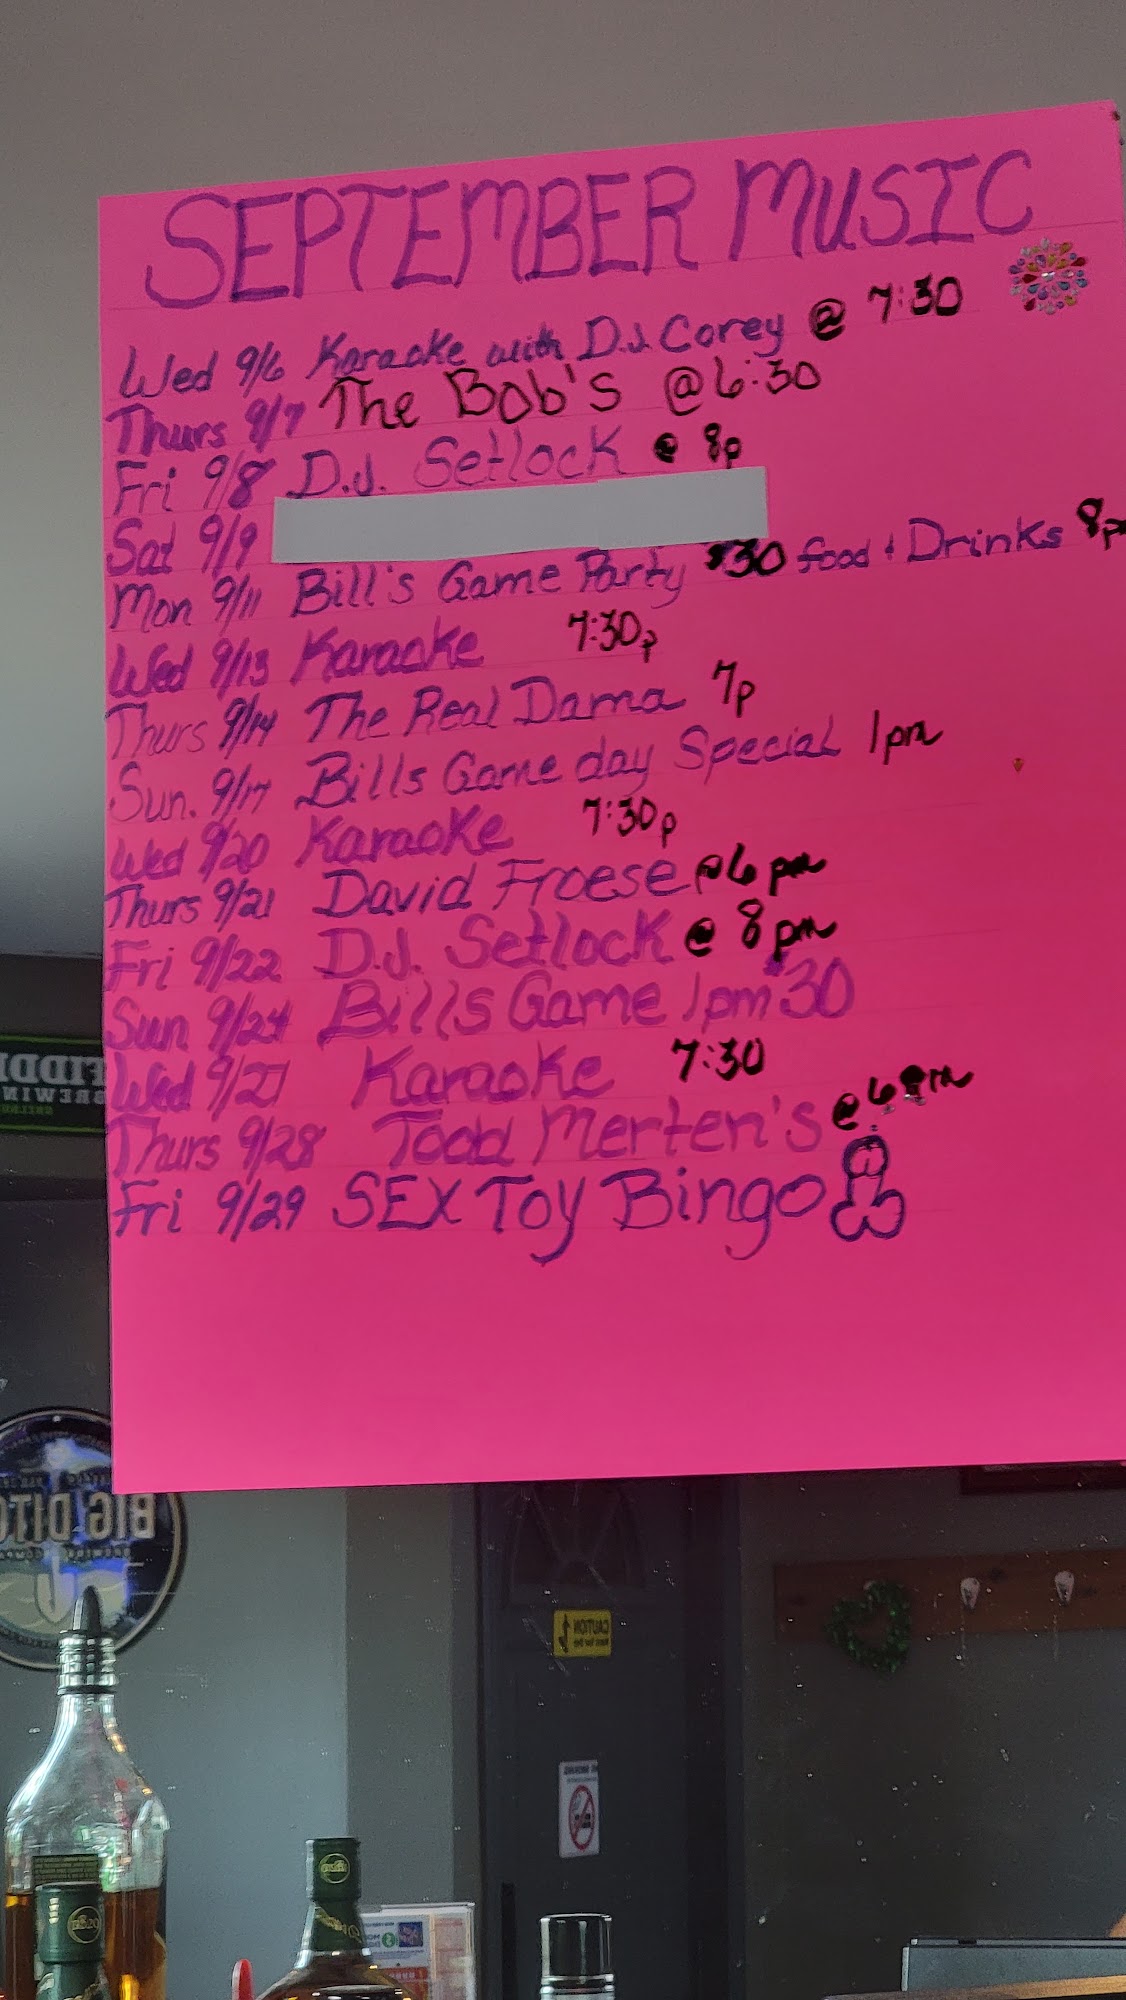 SEPTEMBER MUSIC
Wed 9/6 Karaoke with D.J. Corey @ 7:30
Thurs 9/7 The Bob's @ 6:30
Fri 9/8 D.J. Setlock @ 8p
Sat 9/9
Mon 9/11 Bill's Game Party $30 food + Drinks 8pm
Wed 9/13 Karaoke 7:30p
Thurs 9/14 The Real Dama 7p
Sun. 9/17 Bills Game day Special 1pm
Wed 9/20 Karaoke 7:30p
Thurs 9/21 David Froese @ 6pm
Fri 9/22 D.J. Setlock @ 8pm
Sun 9/24 Bills Game 1pm $30
Wed 9/27 Karaoke 7:30
Thurs 9/28 Todd Merten's @ 6pm
Fri 9/29 SEX Toy Bingo
FIDDL
BREWIN
BIG DITC
CAUTION